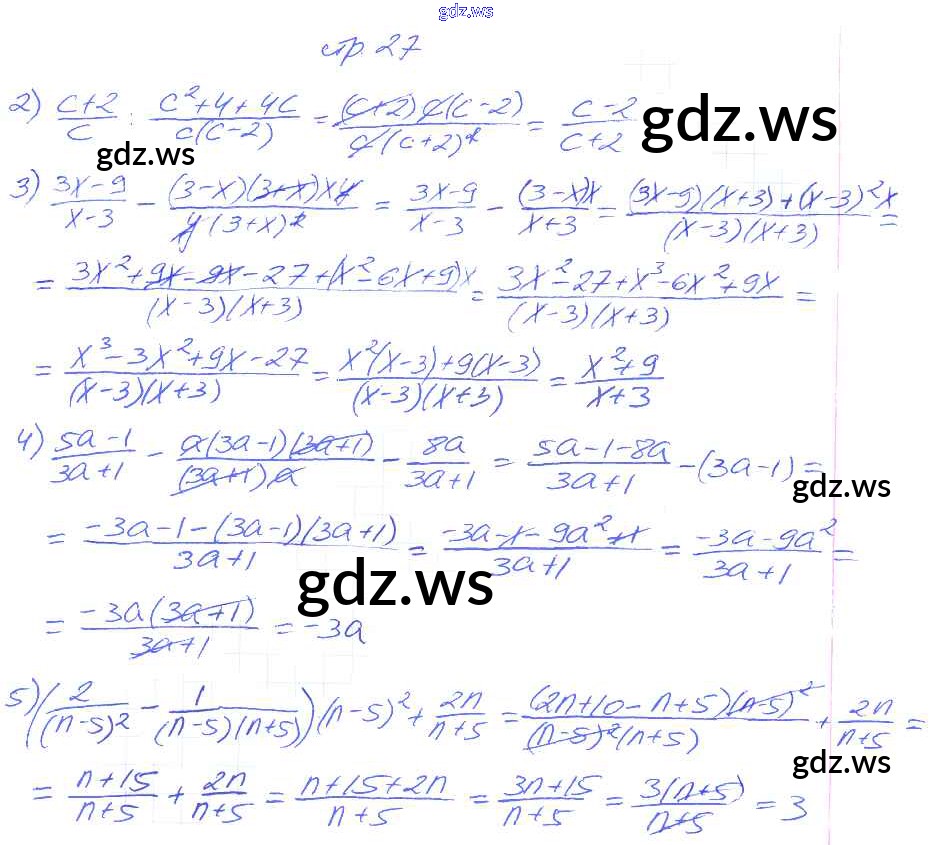 gdz.ws
стр. 27
2) (c+2)/c : (c²+4+4c)/(c(c-2)) = ((c+2)c(c-2))/(c(c+2)²) = (c-2)/(c+2) gdz.ws
gdz.ws
3) (3x-9)/(x-3) - ((3-x)(3+x)xy)/(y(3+x)²) = (3x-9)/(x-3) - ((3-x)x)/(x+3) = ((3x-9)(x+3)+(x-3)²x)/((x-3)(x+3)) =
= (3x²+9x-9x-27+(x²-6x+9)x)/((x-3)(x+3)) = (3x²-27+x³-6x²+9x)/((x-3)(x+3)) =
= (x³-3x²+9x-27)/((x-3)(x+3)) = (x²(x-3)+9(x-3))/((x-3)(x+3)) = (x²+9)/(x+3)
4) (5a-1)/(3a+1) - (a(3a-1)(3a+1))/((3a+1)a) - 8a/(3a+1) = (5a-1-8a)/(3a+1) - (3a-1) =
gdz.ws
= (-3a-1-(3a-1)(3a+1))/(3a+1) = (-3a-1-9a²+1)/(3a+1) = (-3a-9a²)/(3a+1) =
gdz.ws
= (-3a(3a+1))/(3a+1) = -3a
5) (2/(n-5)² - 1/((n-5)(n+5)))(n-5)² + 2n/(n+5) = ((2n+10-n+5)(n-5)²)/((n-5)²(n+5)) + 2n/(n+5) =
gdz.ws
= (n+15)/(n+5) + 2n/(n+5) = (n+15+2n)/(n+5) = (3n+15)/(n+5) = (3(n+5))/(n+5) = 3